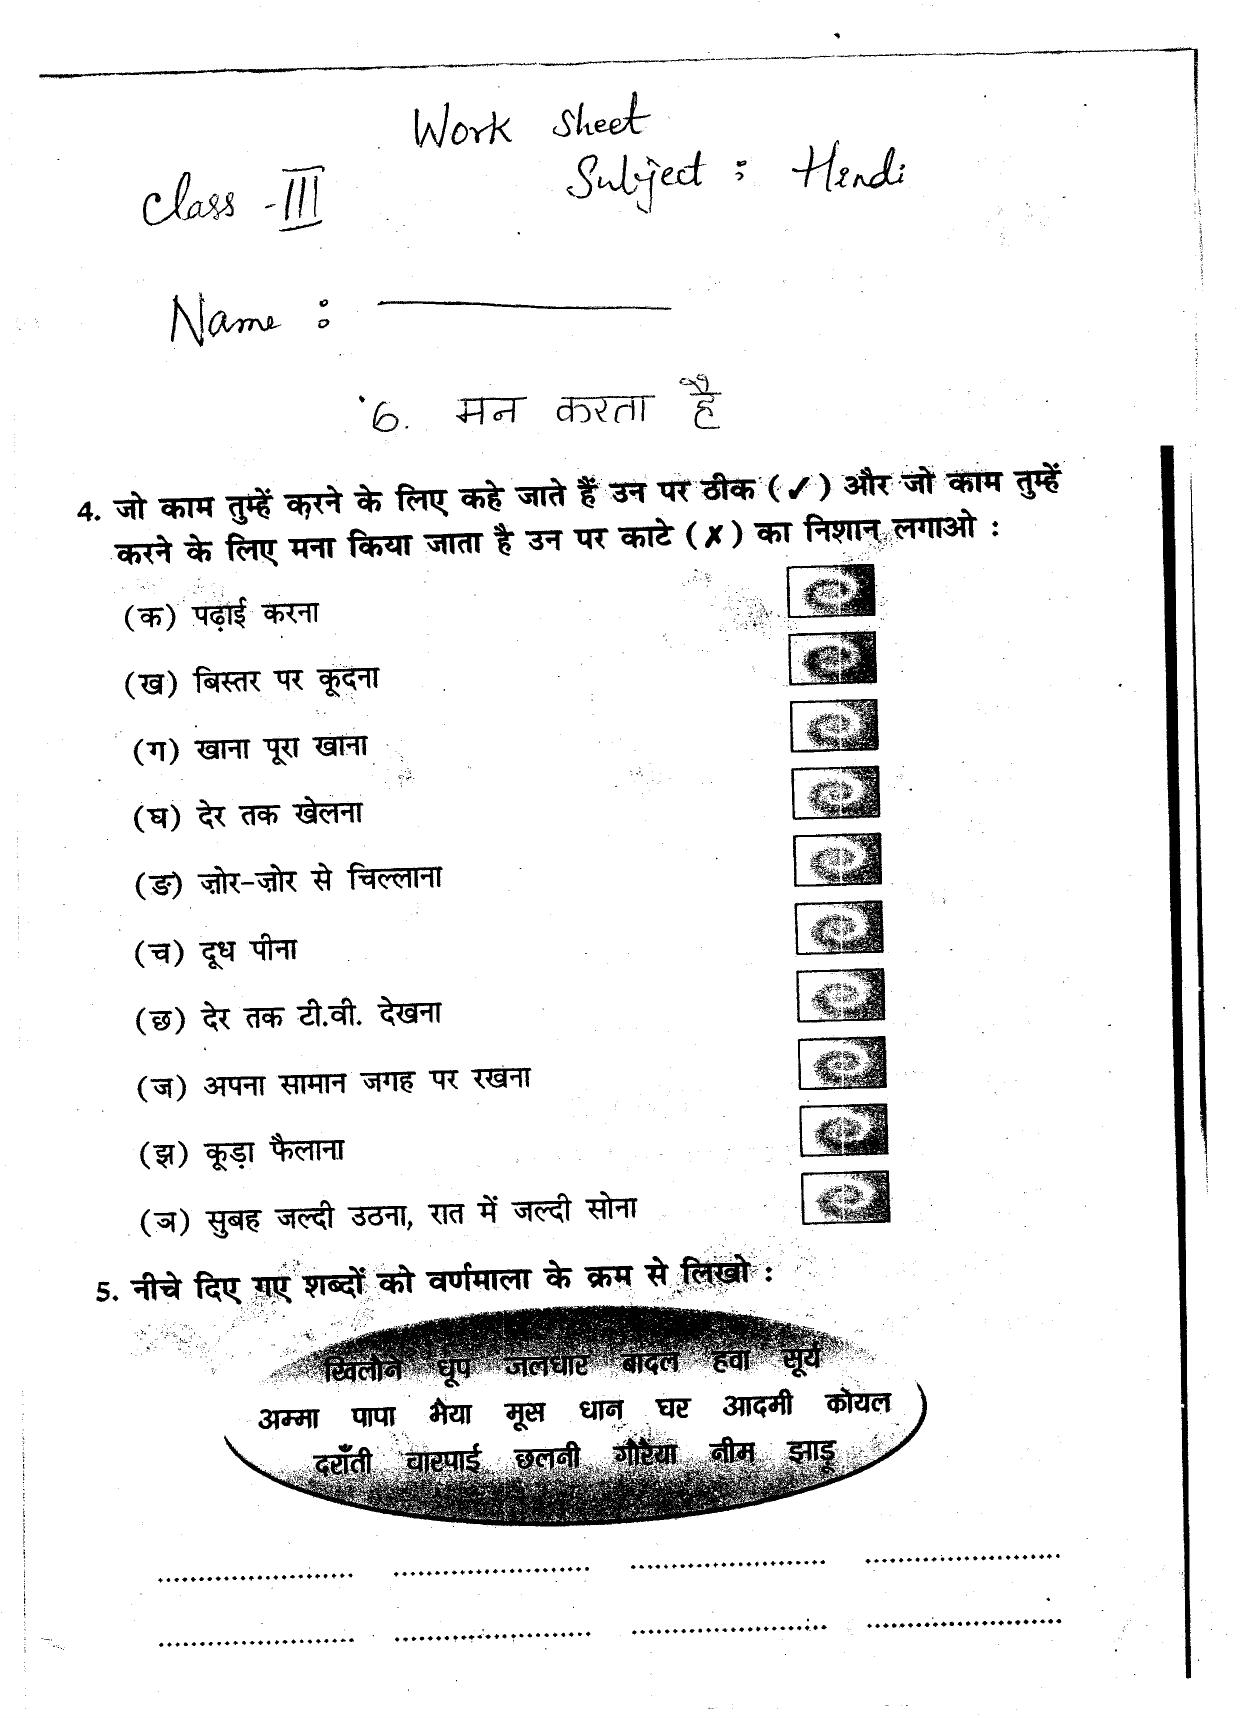 Work Sheet
Class - III
Subject : Hindi
Name :
6. मन करता है
4. जो काम तुम्हें करने के लिए कहे जाते हैं उन पर ठीक (✓) और जो काम तुम्हें
करने के लिए मना किया जाता है उन पर काटे (✗) का निशान लगाओ :
(क) पढ़ाई करना
(ख) बिस्तर पर कूदना
(ग) खाना पूरा खाना
(घ) देर तक खेलना
(ङ) ज़ोर-ज़ोर से चिल्लाना
(च) दूध पीना
(छ) देर तक टी.वी. देखना
(ज) अपना सामान जगह पर रखना
(झ) कूड़ा फैलाना
(ञ) सुबह जल्दी उठना, रात में जल्दी सोना
5. नीचे दिए गए शब्दों को वर्णमाला के क्रम से लिखो :
खिलौने धूप जलधार बादल हवा सूर्य
अम्मा पापा भैया मूस धान घर आदमी कोयल
दराँती चारपाई छलनी गौरैया नीम झाड़ू